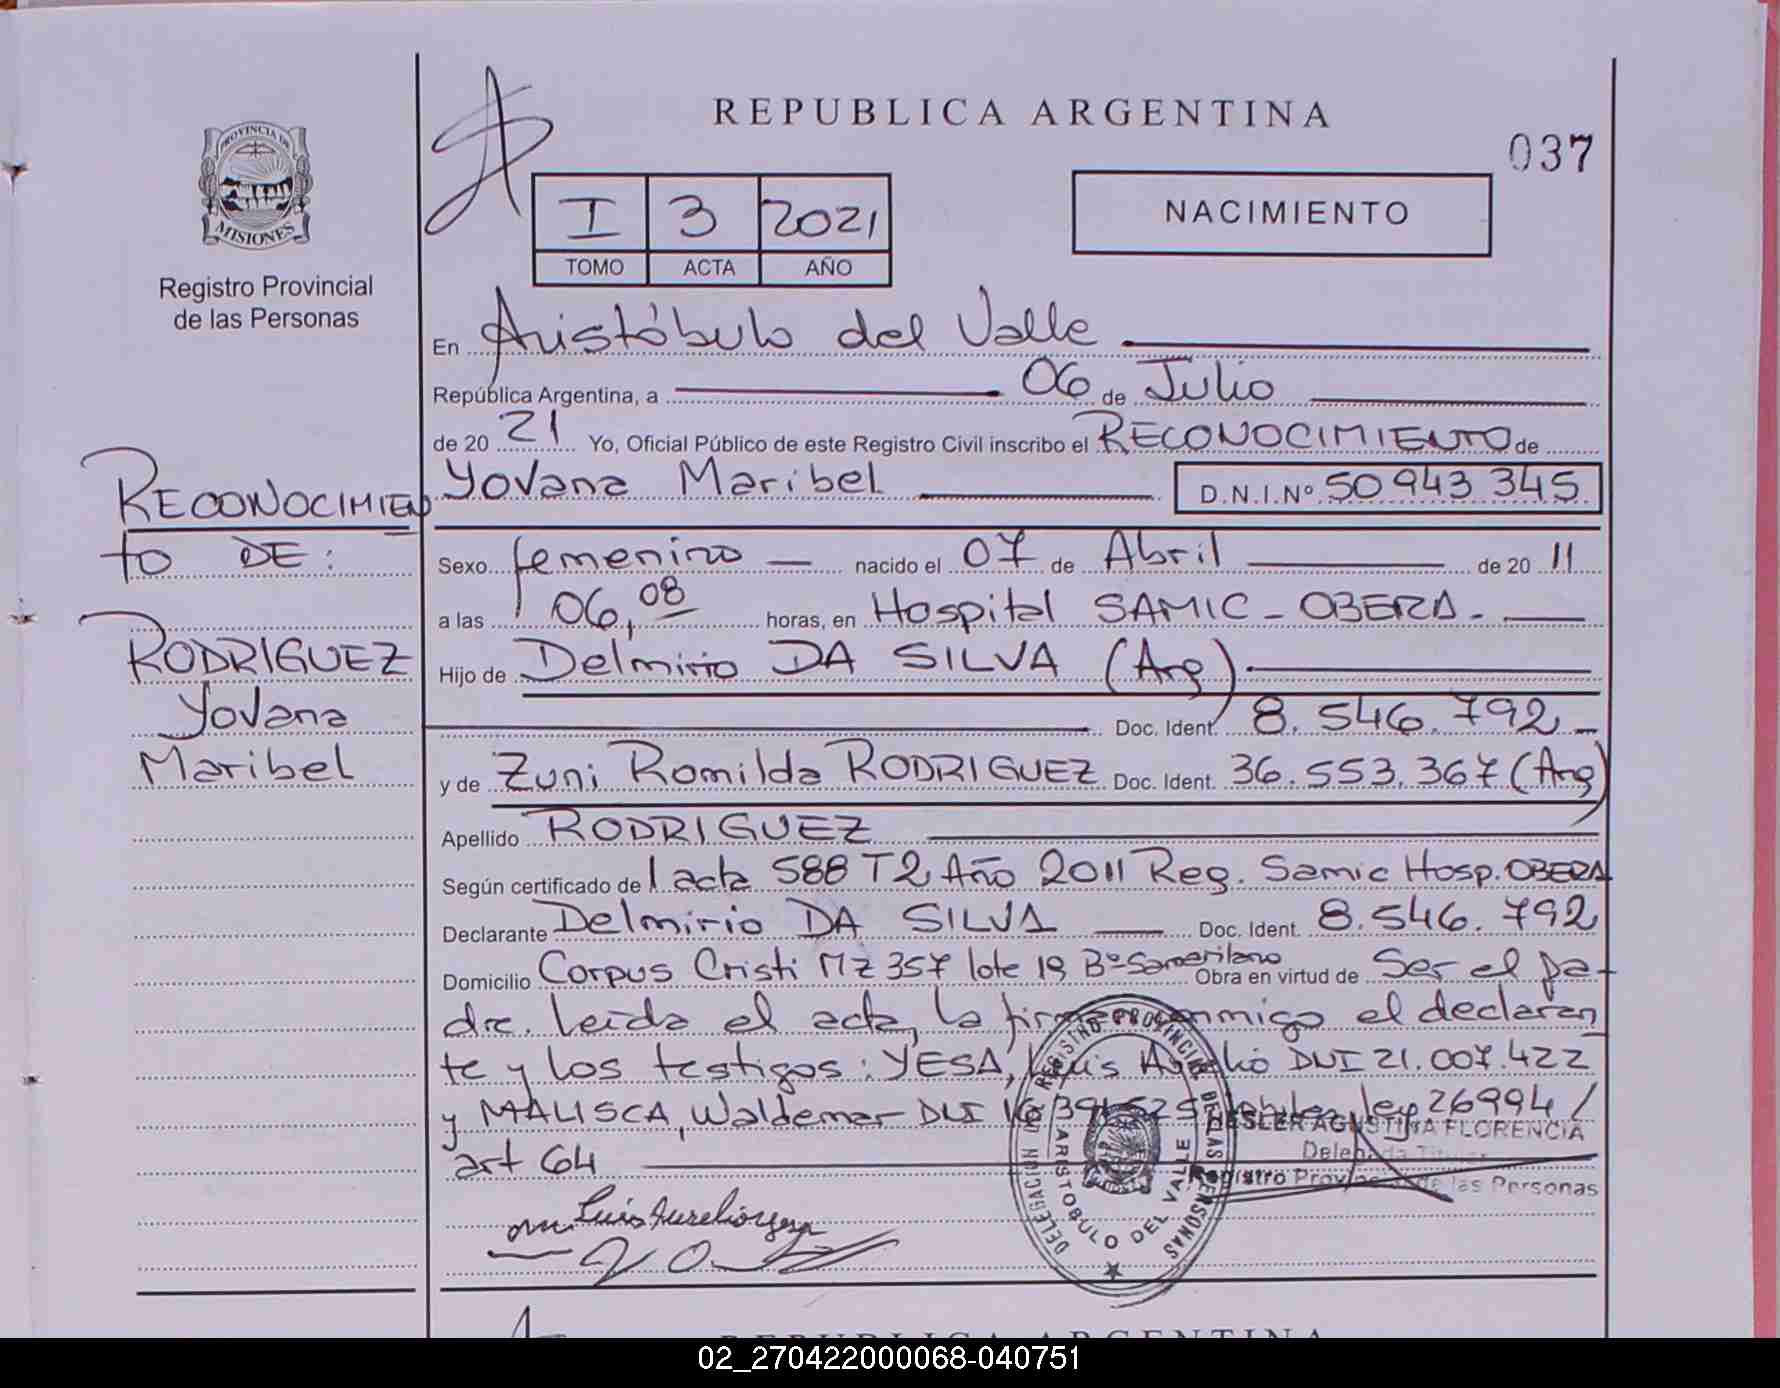 REPUBLICA ARGENTINA
037
PROVINCIA DE
MISIONES
Registro Provincial
de las Personas
I 3 2021
TOMO ACTA AÑO
NACIMIENTO
En Aristóbulo del Valle
República Argentina, a 06 de Julio
de 20 21 Yo, Oficial Público de este Registro Civil inscribo el RECONOCIMIENTO de
Yovana Maribel D.N.I.Nº 50 943 345
RECONOCIMIEN
to DE:
RODRIGUEZ
Yovana
Maribel
Sexo femenino nacido el 07 de Abril de 20 11
a las 06,08 horas, en Hospital SAMIC - OBERA -
Hijo de Delmirio DA SILVA (Arg)
Doc. Ident. 8.546.792
y de Zuni Romilda RODRIGUEZ Doc. Ident. 36.553.367 (Arg)
Apellido RODRIGUEZ
Según certificado de acta 588 T2 Año 2011 Reg. Samic Hosp. OBERA
Declarante Delmirio DA SILVA Doc. Ident. 8.546.792
Domicilio Corpus Cristi MZ 357 lote 19 Bº Samaritano Obra en virtud de Ser el pa-
dre. Leída el acta, la firma conmigo el declaran
te y los testigos: YESA, Luis Aurelio DNI 21.007.422
y MALISCA, Waldemar DNI ley 26994/
art 64
AGUSTINA FLORENCIA
Delegada Titular
Registro Provincial de las Personas
DELEGACION DEL REGISTRO PROVINCIAL DE LAS PERSONAS
ARISTOBULO DEL VALLE
Luis Aurelio yesa
REPUBLICA ARGENTINA
02_270422000068-040751